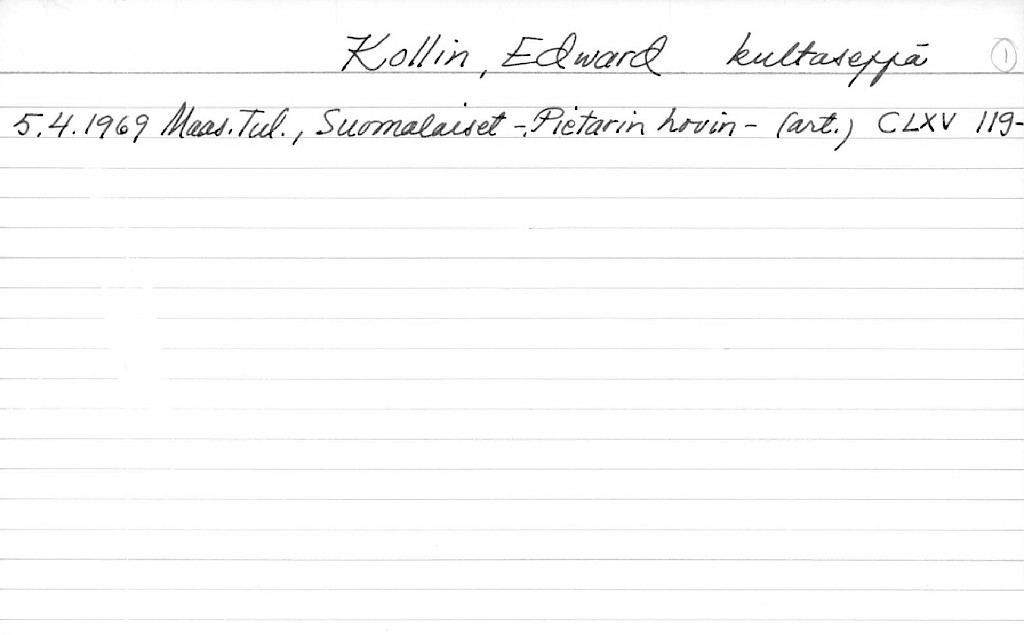 Kollin, Edward kultaseppä 1
5.4.1969 Maas.Tul., Suomalaiset - Pietarin hovin - (art.) CLXV 119-